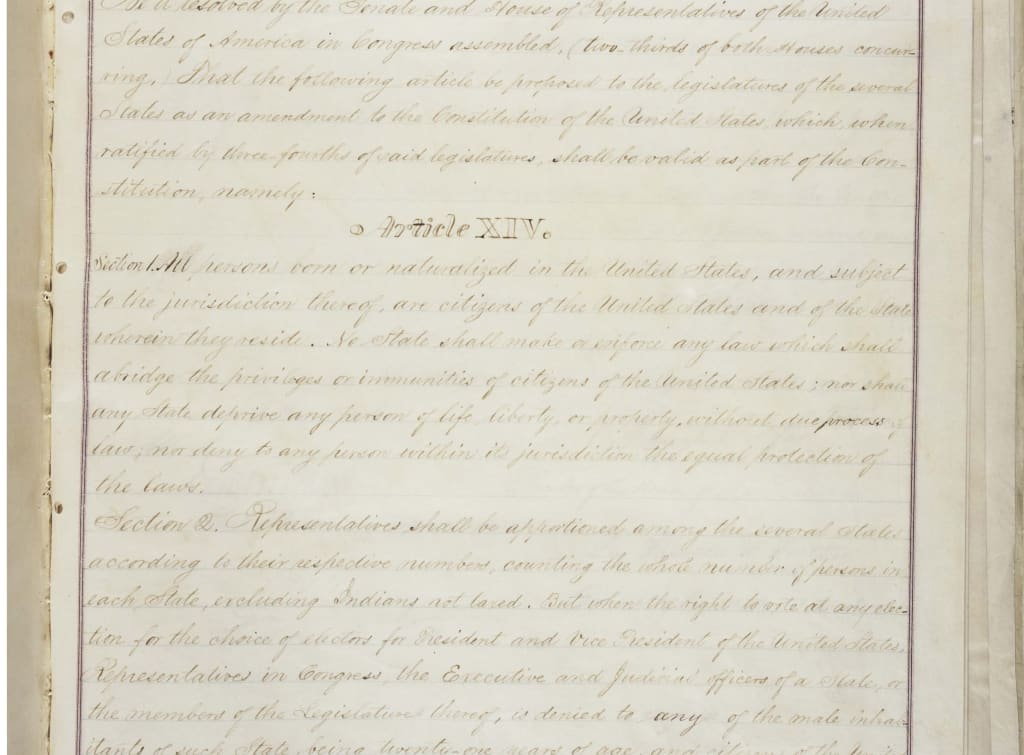 Be it resolved by the Senate and House of Representatives of the United
States of America in Congress assembled, (two-thirds of both Houses concur-
ring,) That the following article be proposed to the legislatures of the several
States as an amendment to the Constitution of the United States, which, when
ratified by three-fourths of said legislatures, shall be valid as part of the Con-
stitution, namely:
Article XIV.
Section 1. All persons born or naturalized in the United States, and subject
to the jurisdiction thereof, are citizens of the United States and of the State
wherein they reside. No State shall make or enforce any law which shall
abridge the privileges or immunities of citizens of the United States; nor shall
any State deprive any person of life, liberty, or property, without due process of
law; nor deny to any person within its jurisdiction the equal protection of
the laws.
Section 2. Representatives shall be apportioned among the several States
according to their respective numbers, counting the whole number of persons in
each State, excluding Indians not taxed. But when the right to vote at any elec-
tion for the choice of electors for President and Vice President of the United States,
Representatives in Congress, the Executive and Judicial officers of a State, or
the members of the Legislature thereof, is denied to any of the male inhab-
itants of such State, being twenty-one years of age, and citizens of the United